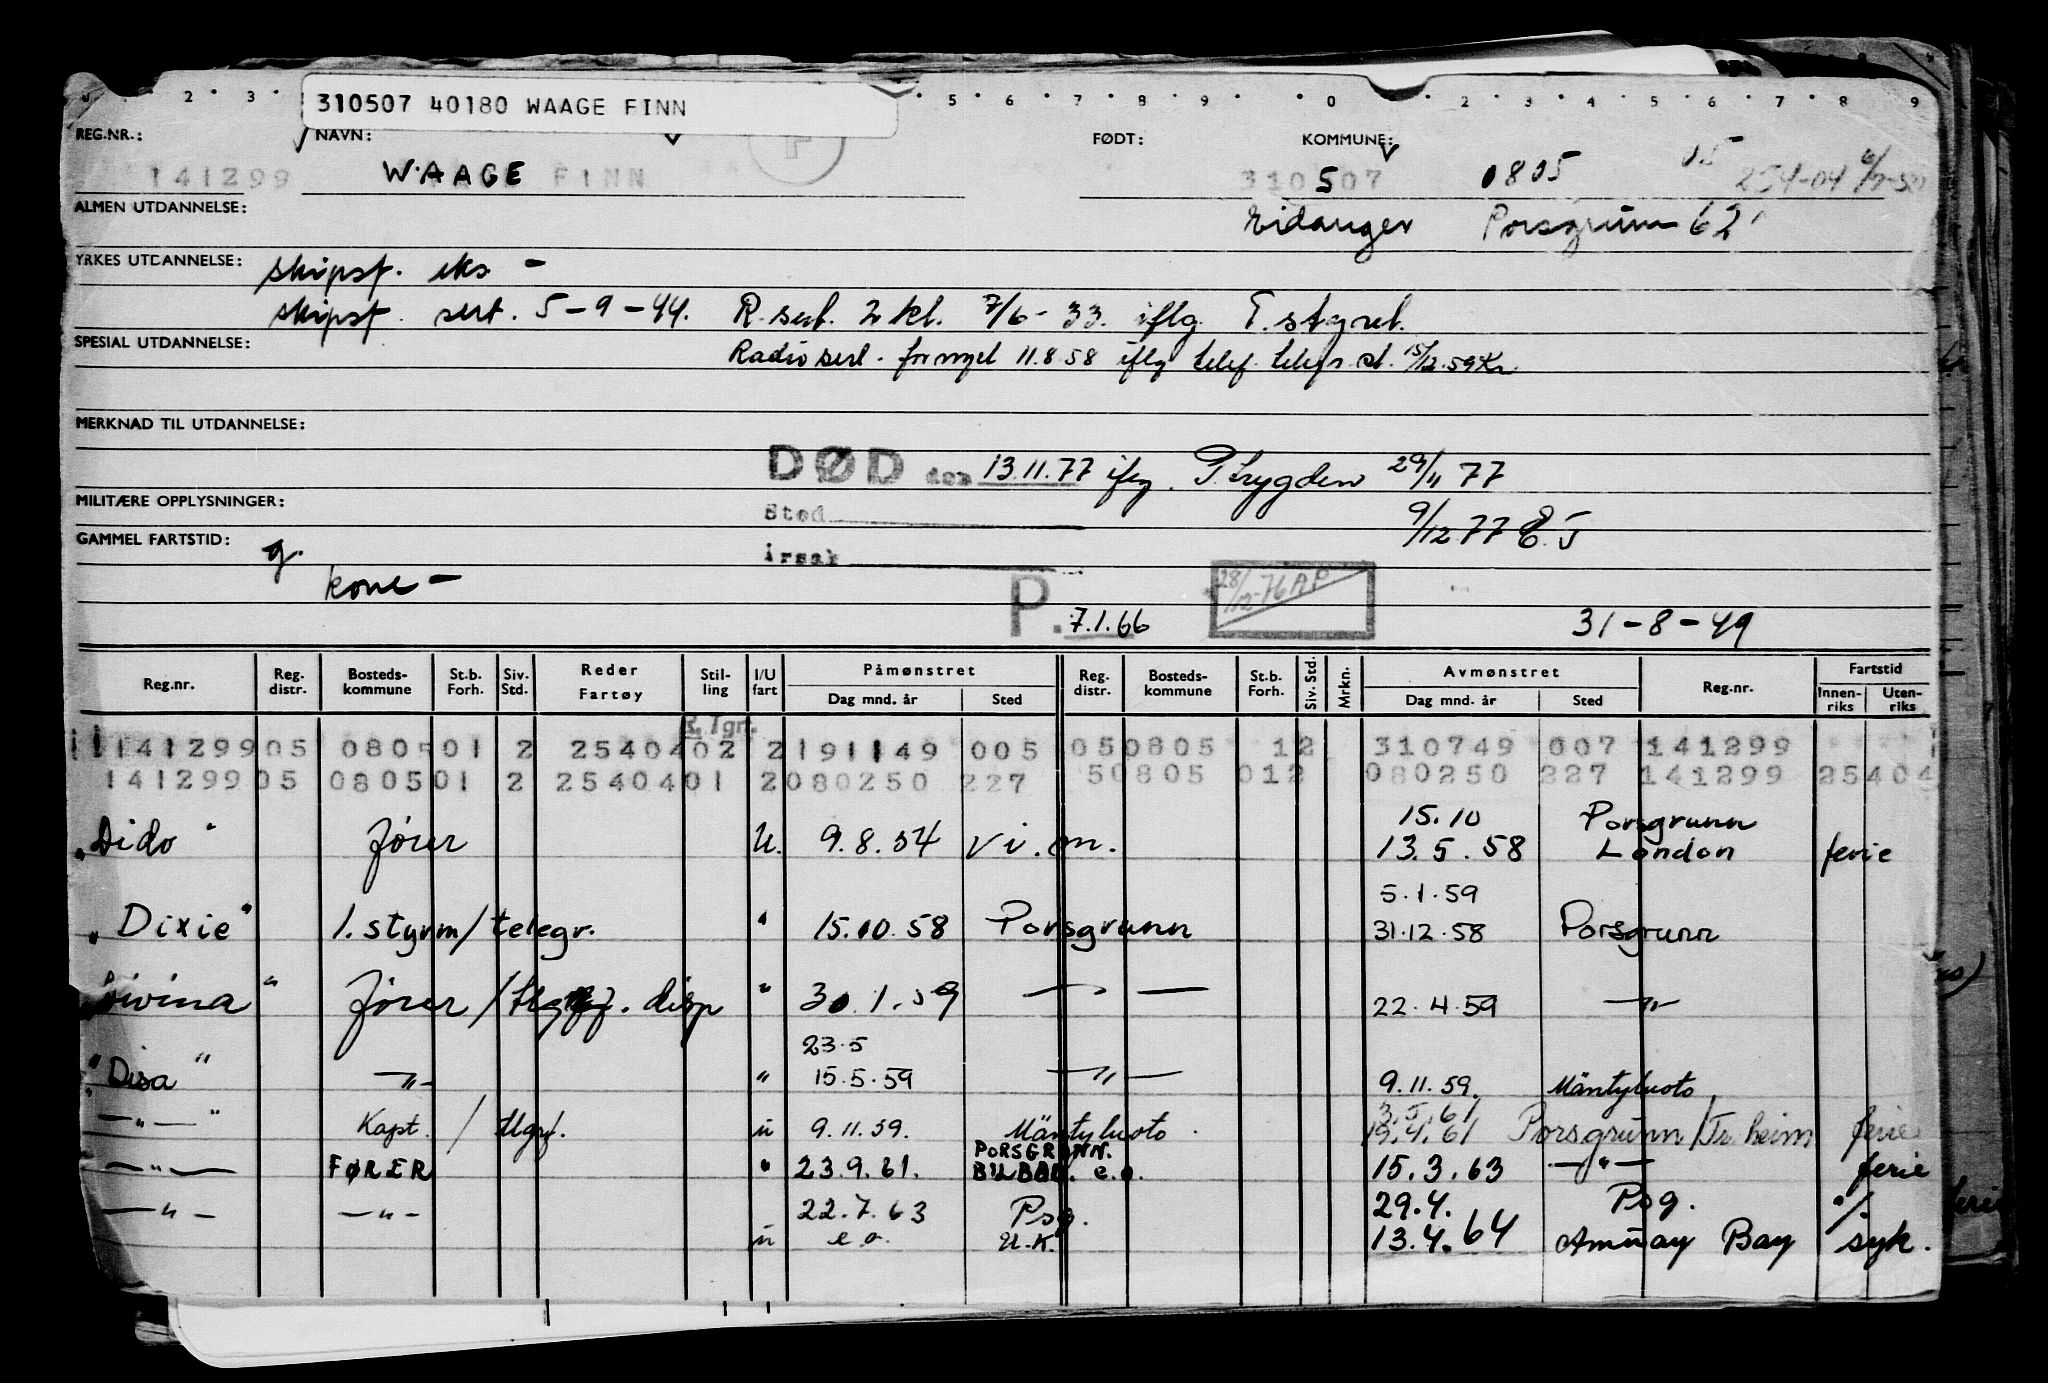 2 · 3 5 · 6 · 7 · 8 · 9 · · 0 2 · 3 · 4 · 5 · 6 · 7 · 8 9
310507 40180 WAAGE FINN
REG.NR.: NAVN: FØDT: KOMMUNE:
141299 WAAGE FINN 310507 0805 254-04
ALMEN UTDANNELSE: Eidanger Porsgrunn 62
YRKES UTDANNELSE: skipsf. eks -
skipsf. sert. 5-9-44. R.sert. 2 kl. 7/6-33. iflg. T.styret.
SPESIAL UTDANNELSE: Radiosert. fornyet 11.8.58 iflg telef. telegr.st. 15/12.59 Kr.
MERKNAD TIL UTDANNELSE:
DØD den 13.11.77 iflg. P.trygden 29/11 77
MILITÆRE OPPLYSNINGER: Sted 9/12 77 E.J
GAMMEL FARTSTID: g. årsak
kone - 28/12-76 AP
P. 7.1.66 31-8-49
Reg.nr. Reg. distr. Bosteds-kommune St.b. Forh. Siv. Std. Reder Fartøy Stil-ling I/U fart Påmønstret Dag mnd. år Sted Reg. distr. Bosteds-kommune St.b. Forh. Siv. Std. Mrkn. Avmønstret Dag mnd. år Sted Reg.nr. Fartstid Innen-riks Uten-riks
R.Tgr.
141299 05 0805 01 2 25404 02 2 191149 005 05 0805 12 310749 007 141299
141299 05 0805 01 2 25404 01 2 080250 227 50805 012 080250 227 141299 25404
15.10 Porsgrunn
"Dido" fører U. 9.8.54 vi.m. 13.5.58 London ferie
5.1.59
"Dixie" 1. styrm/telegr. " 15.10.58 Porsgrunn 31.12.58 Porsgrunn
Divina" fører / disp " 30.1.59 —"— 22.4.59 —"—
23.5
"Disa" —"— " 15.5.59 —"— 9.11.59. Mäntyluoto
3.5.61
—"— Kapt. / tlgrf. u 9.11.59. Mäntyluoto. 19.4.61 Porsgrunn/Tr.heim ferie
PORSGRUNN.
—"— FØRER " 23.9.61. BILBAO. e.o. 15.3.63 —"— ferie
—"— —"— 22.7.63 Psg. 29.4. Psg. "/.
u e.o. U.K. 13.4.64 Amuay Bay syk.